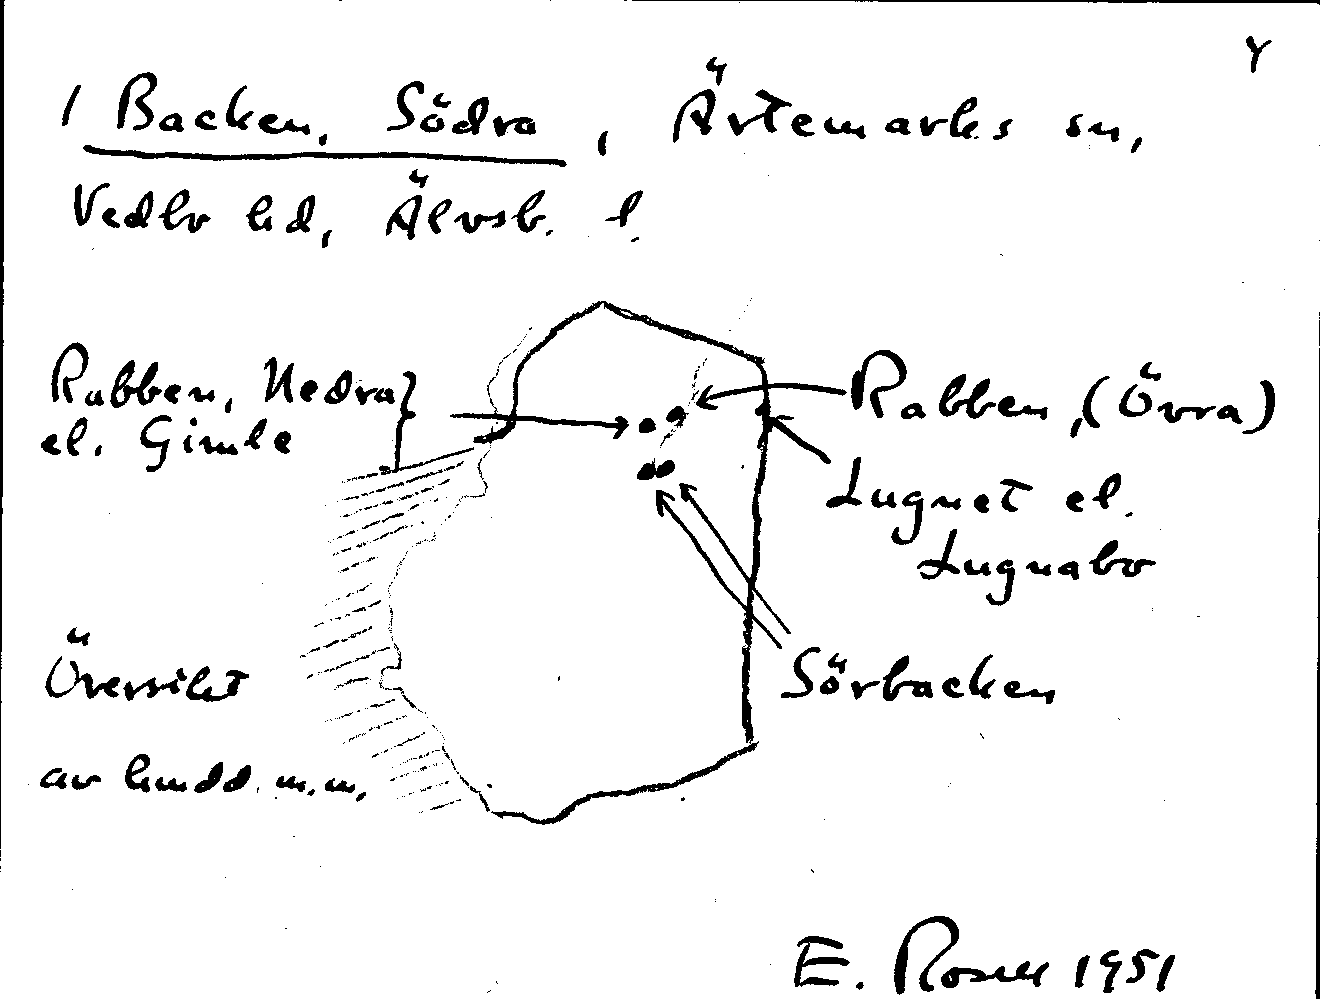 Y
1 Backen, Södra, Ärtemarks sn,
Vedbo hd, Älvsb. l.
Rabben, Nedra
el. Gimle
Rabben, (Övra)
Lugnet el.
Lugnabo
Sörbacken
Översikt
av hmdd. m.m.
E. Rosell 1951